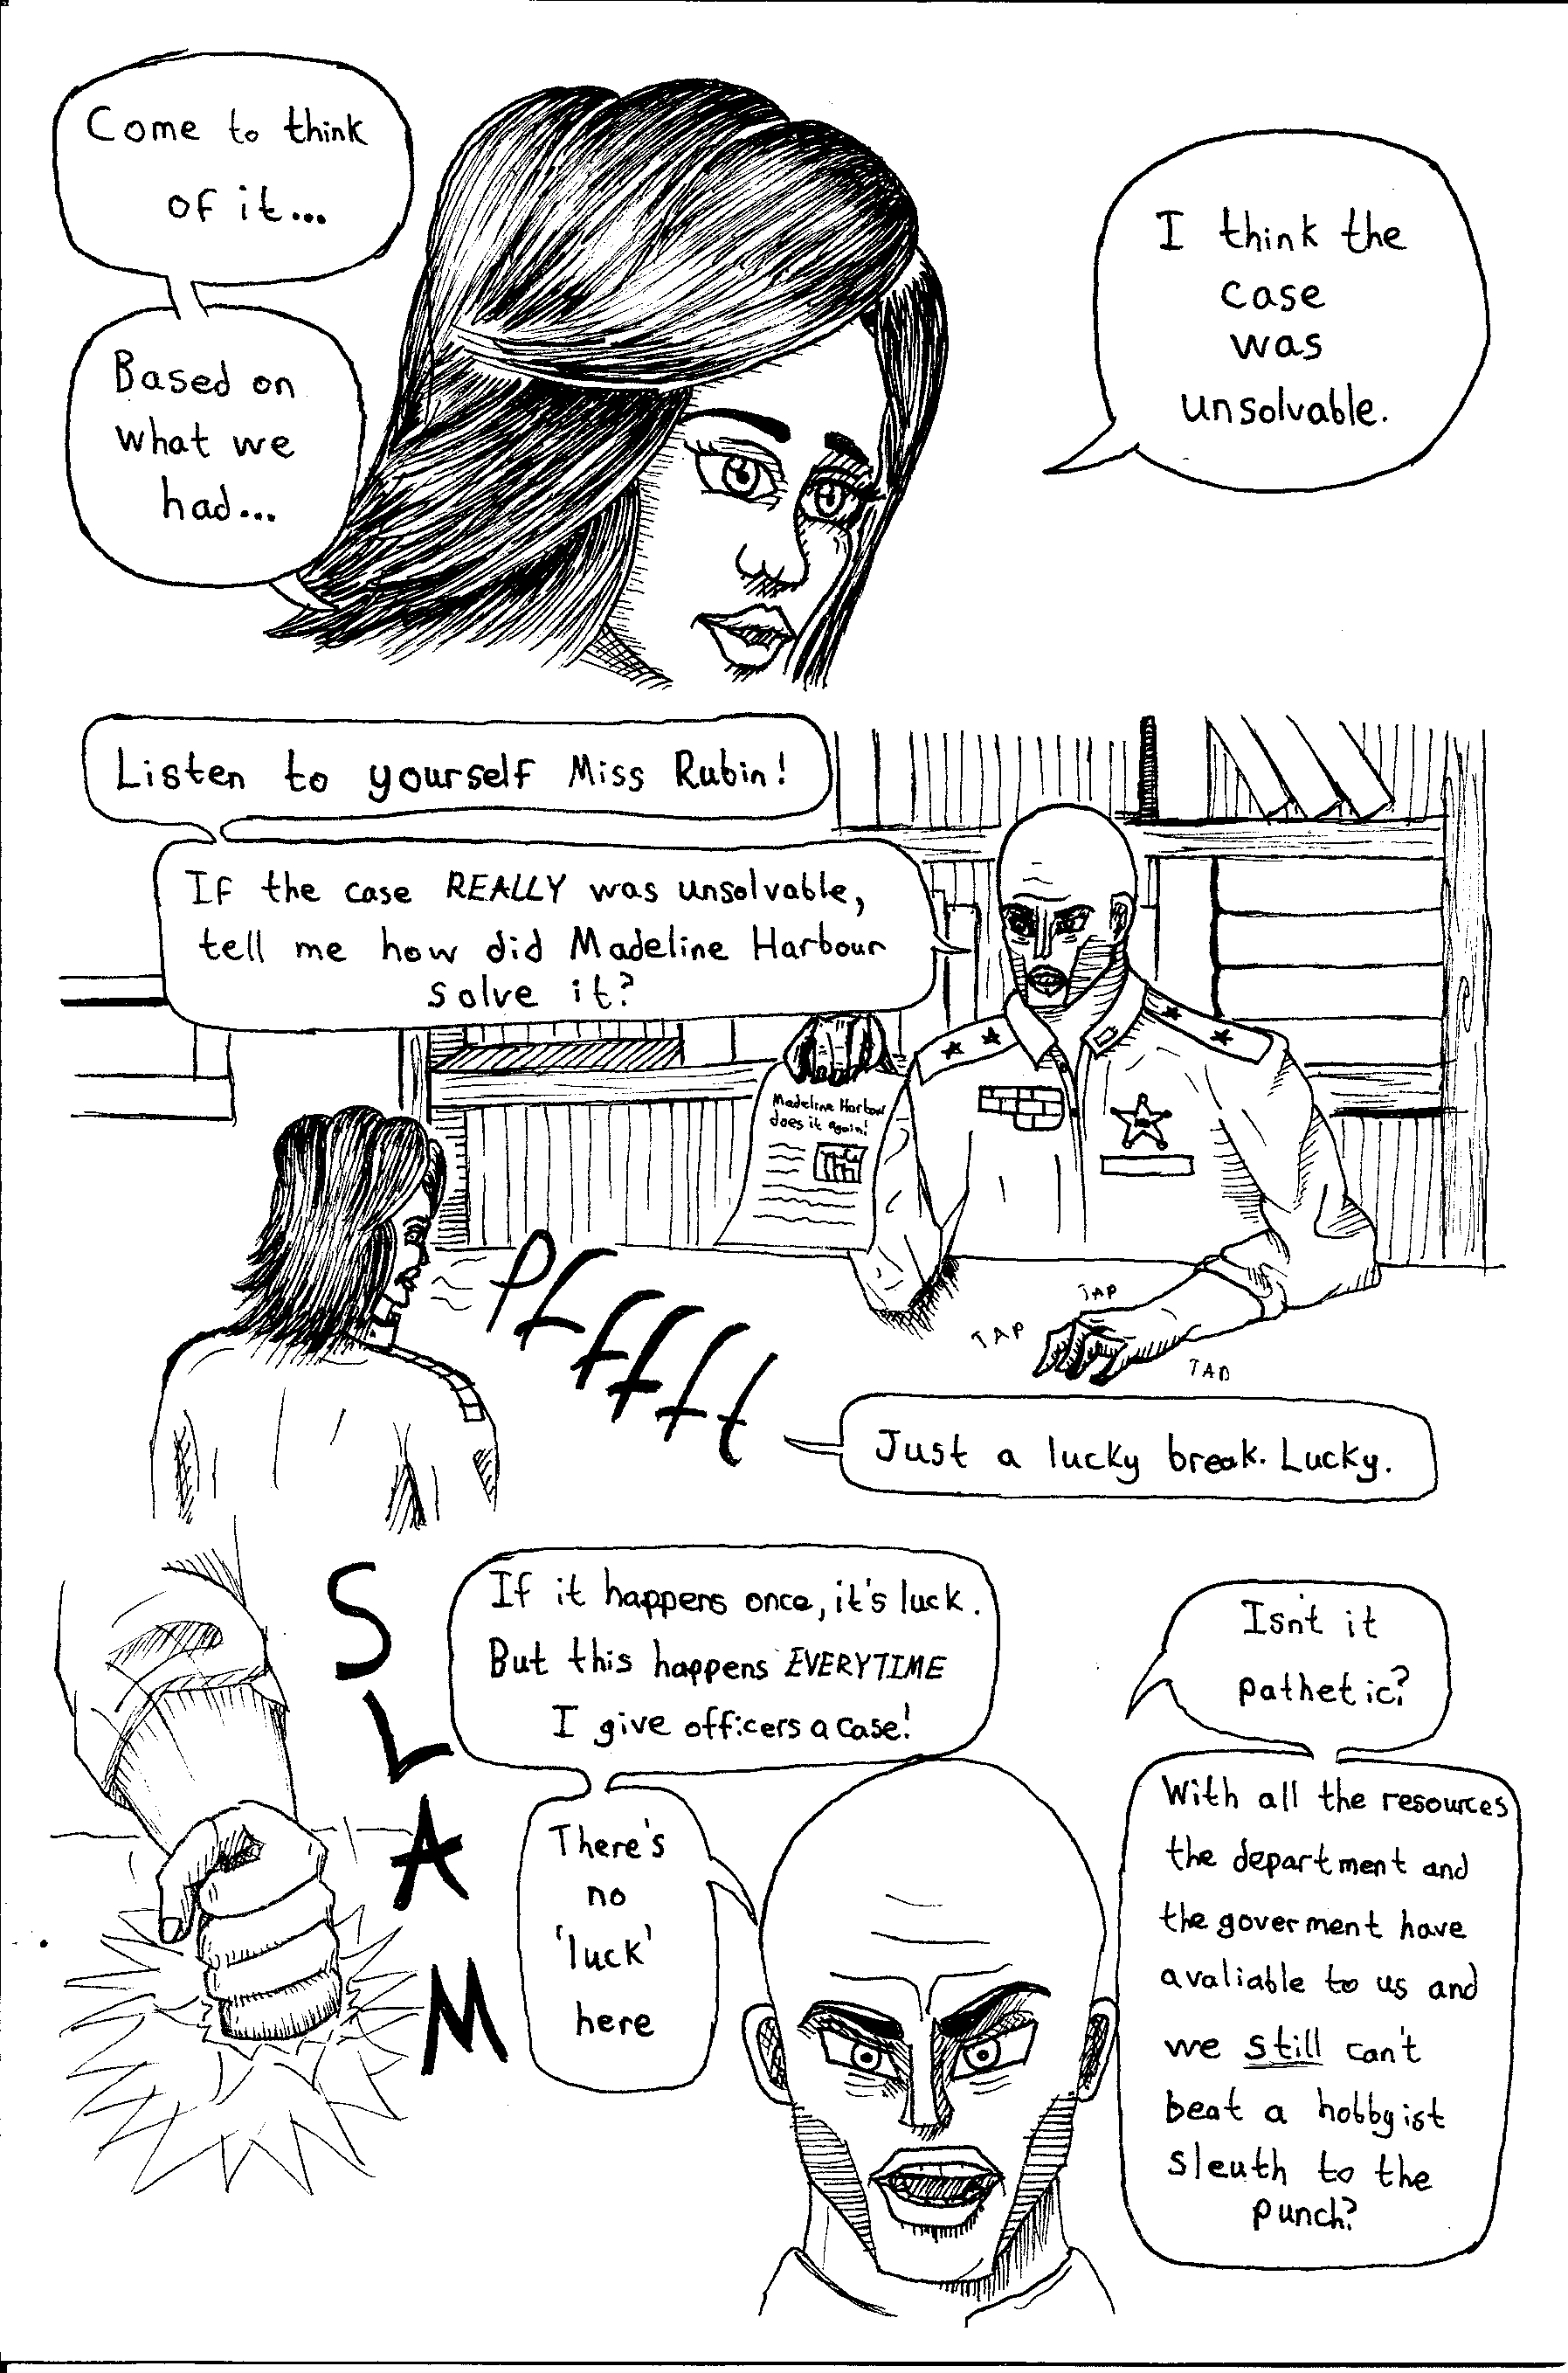 Come to think
of it...
Based on
what we
had...
I think the
case
was
unsolvable.
Listen to yourself Miss Rubin!
If the case REALLY was unsolvable,
tell me how did Madeline Harbour
solve it?
Madeline Harbour
does it again!
TAP
TAP
TAP
Pffffft
Just a lucky break. Lucky.
SLAM
If it happens once, it's luck.
But this happens EVERYTIME
I give officers a case!
There's
no
'luck'
here
Isn't it
pathetic?
With all the resources
the department and
the goverment have
avaliable to us and
we still can't
beat a hobbyist
sleuth to the
punch?